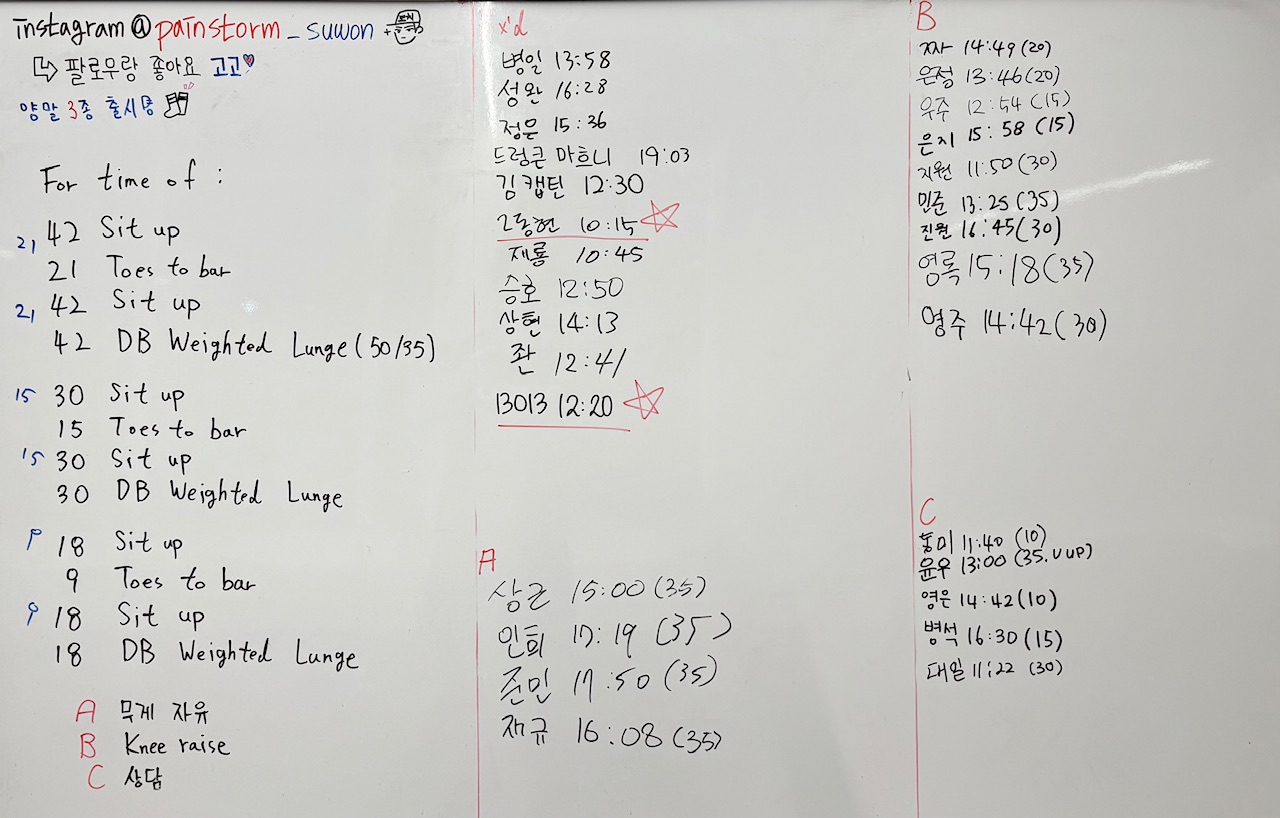 instagram@painstorm_suwon
팔로우랑 좋아요 고고
양말 3종 출시중
For time of :
21 42 Sit up
21 Toes to bar
21 42 Sit up
42 DB Weighted Lunge (50/35)
15 30 Sit up
15 Toes to bar
15 30 Sit up
30 DB Weighted Lunge
9 18 Sit up
9 Toes to bar
9 18 Sit up
18 DB Weighted Lunge
A 무게 자유
B Knee raise
C 상담
x'd
병일 13:58
성완 16:28
정은 15:36
드렁큰 마흐니 19:03
김캡틴 12:30
2동현 10:15
재룡 10:45
승호 12:50
상현 14:13
좐 12:41
13013 12:20
A
상근 15:00 (35)
인희 17:19 (35)
준민 17:50 (35)
재규 16:08 (35)
B
짜 14:49 (20)
은정 13:46 (20)
우주 12:54 (15)
은지 15:58 (15)
지원 11:50 (30)
민준 13:25 (35)
진원 16:45 (30)
영록 15:18 (35)
영주 14:42 (30)
C
11:40 (10)
윤우 13:00 (35. V UP)
영은 14:42 (10)
병석 16:30 (15)
대일 11:22 (30)